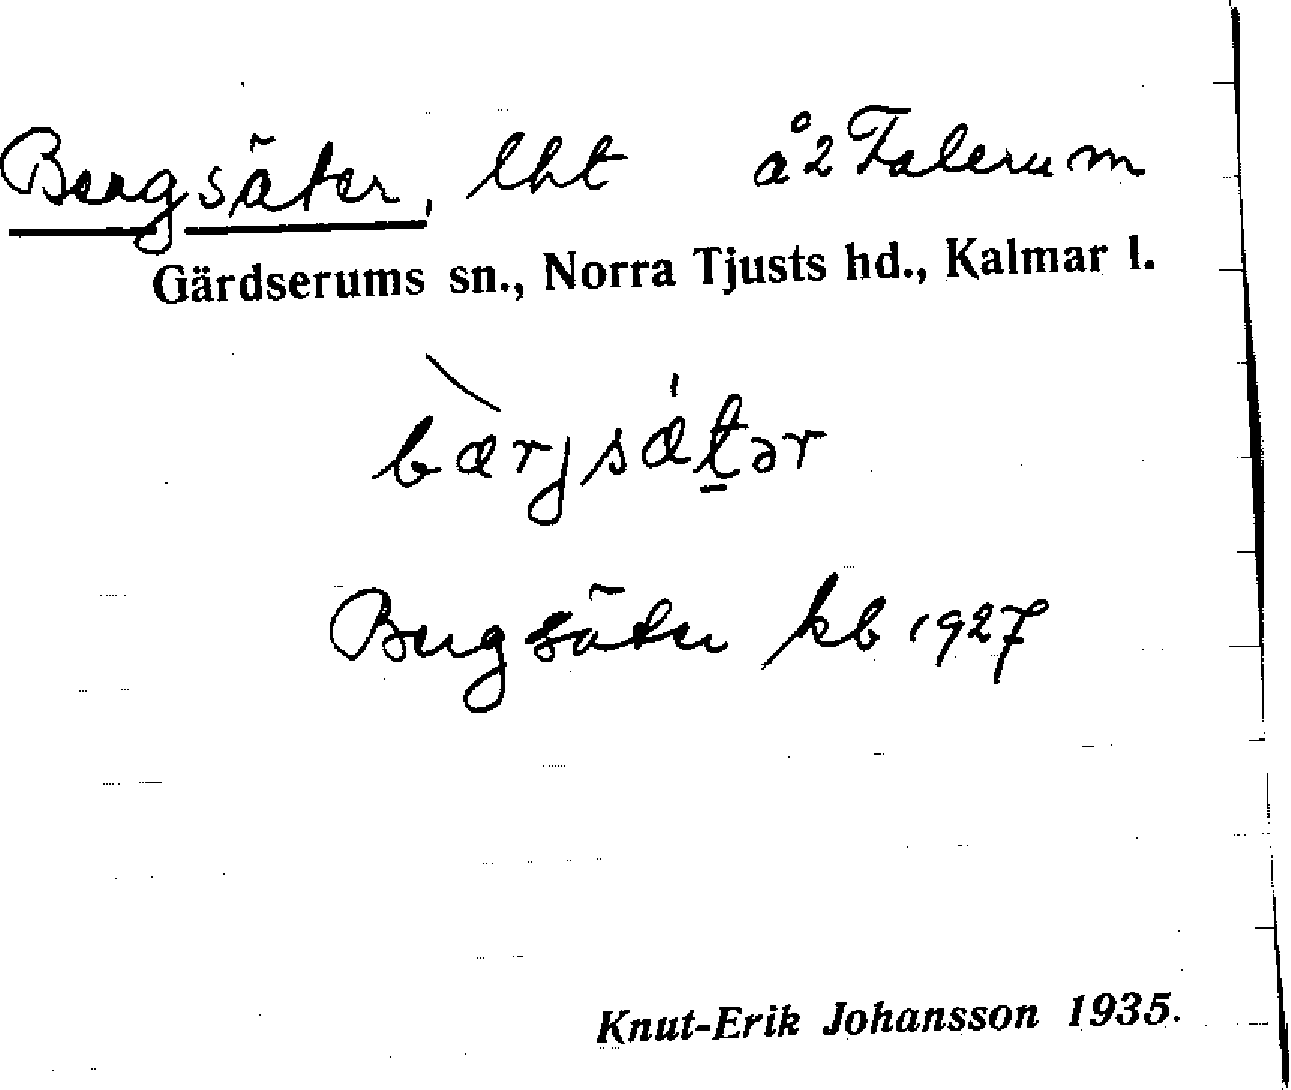 Bergsäter, lht å 2 Falerum
Gärdserums sn., Norra Tjusts hd., Kalmar l.
bàrjsátər
Bergsäter kb 1927
Knut-Erik Johansson 1935.